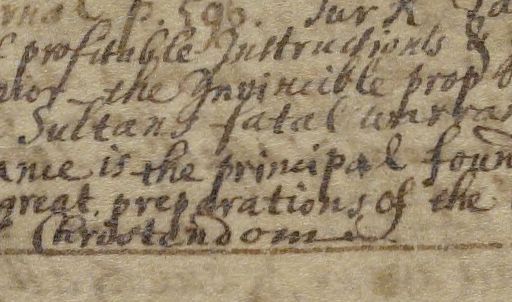 p. 593. Turk
profitable Instructions &
the Invincible prop
Sultans fatal
ance is the principal foun
great preparations of the
Chrostendom